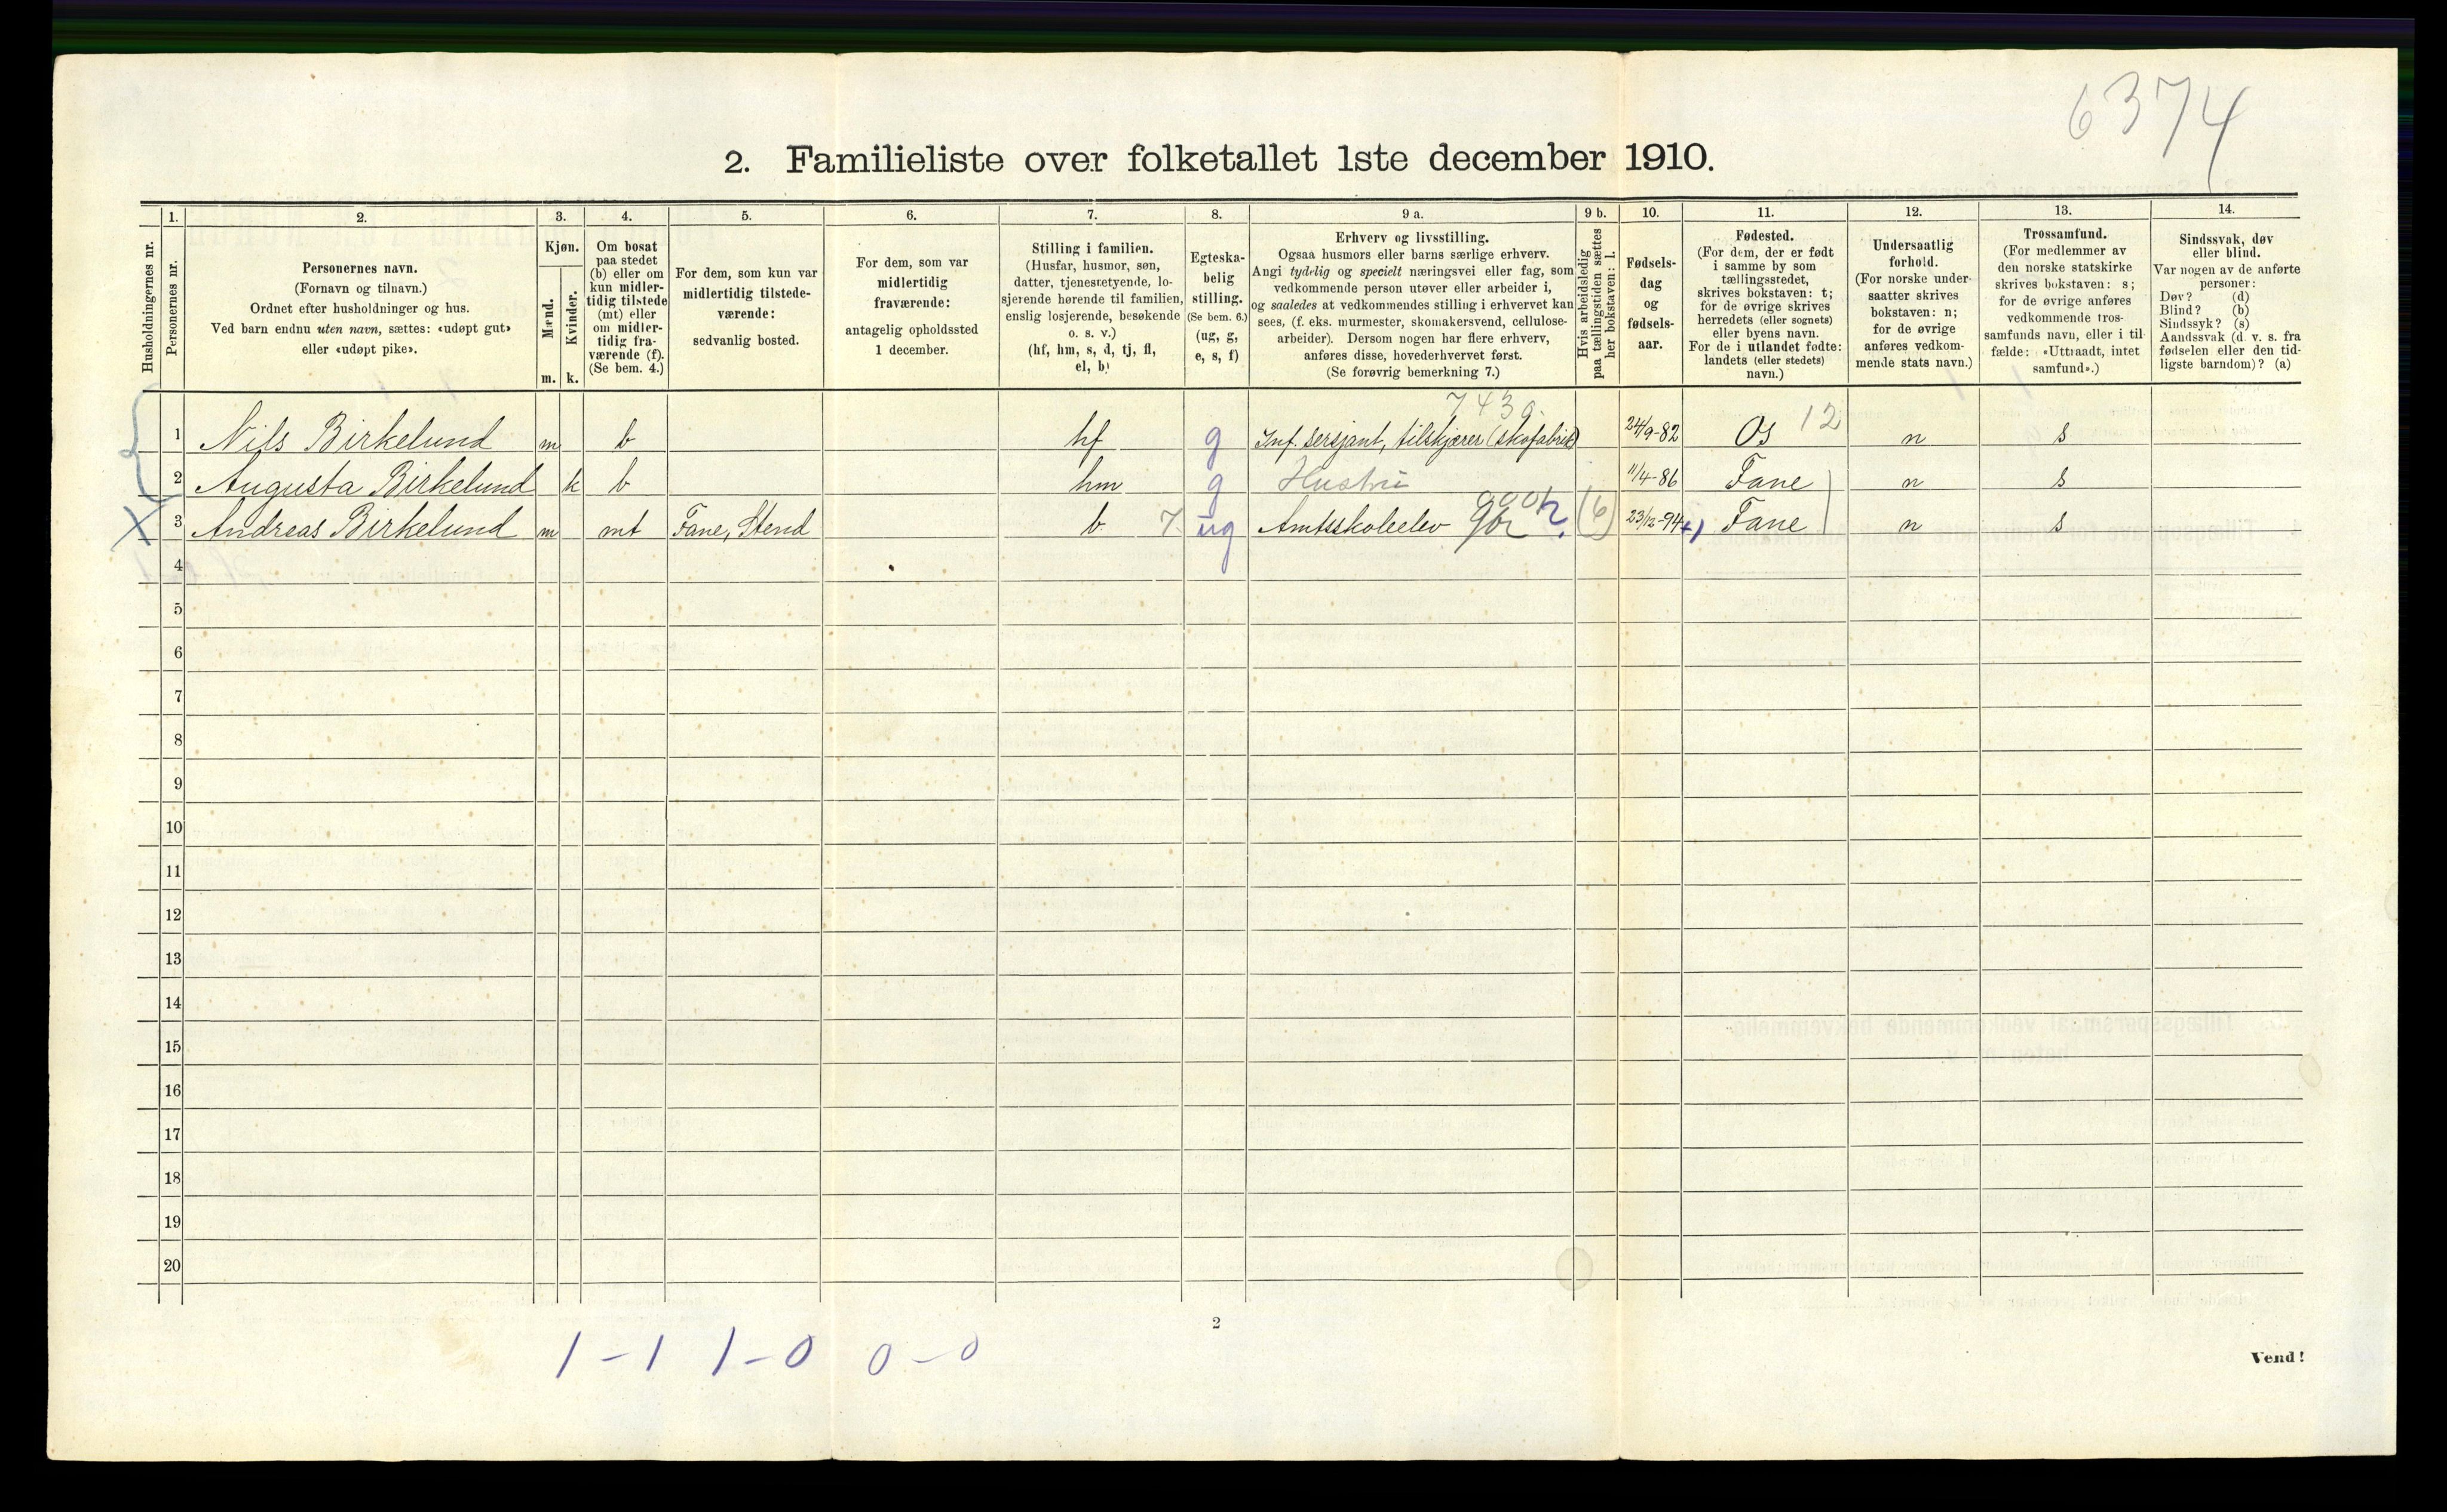 6374
2. Familieliste over folketallet 1ste december 1910.
1. 2. 3. 4. 5. 6. 7. 8. 9 a. 9 b. 10. 11. 12. 13. 14.
Husholdningernes nr.
Personernes nr.
Personernes navn.
(Fornavn og tilnavn.)
Ordnet efter husholdninger og hus.
Ved barn endnu uten navn, sættes: «udøpt gut»
eller «udøpt pike».
Kjøn.
Mænd.
Kvinder.
m. k.
Om bosat
paa stedet
(b) eller om
kun midler-
tidig tilstede
(mt) eller
om midler-
tidig fra-
værende (f).
(Se bem. 4.)
For dem, som kun var
midlertidig tilstede-
værende:
sedvanlig bosted.
For dem, som var
midlertidig
fraværende:
antagelig opholdssted
1 december.
Stilling i familien.
(Husfar, husmor, søn,
datter, tjenestetyende, lo-
sjerende hørende til familien,
enslig losjerende, besøkende
o. s. v.)
(hf, hm, s, d, tj, fl,
el, b)
Egteska-
belig
stilling.
(Se bem. 6.)
(ug, g,
e, s, f)
Erhverv og livsstilling.
Ogsaa husmors eller barns særlige erhverv.
Angi tydelig og specielt næringsvei eller fag, som
vedkommende person utøver eller arbeider i,
og saaledes at vedkommendes stilling i erhvervet kan
sees, (f. eks. murmester, skomakersvend, cellulose-
arbeider). Dersom nogen har flere erhverv,
anføres disse, hovederhvervet først.
(Se forøvrig bemerkning 7.)
Hvis arbeidsledig
paa tællingstiden sættes
her bokstaven: l.
Fødsels-
dag
og
fødsels-
aar.
Fødested.
(For dem, der er født
i samme by som
tællingsstedet,
skrives bokstaven: t;
for de øvrige skrives
herredets (eller sognets)
eller byens navn.
For de i utlandet fødte:
landets (eller stedets)
navn.)
Undersaatlig
forhold.
(For norske under-
saatter skrives
bokstaven: n;
for de øvrige
anføres vedkom-
mende stats navn.)
Trossamfund.
(For medlemmer av
den norske statskirke
skrives bokstaven: s;
for de øvrige anføres
vedkommende tros-
samfunds navn, eller i til-
fælde: «Uttraadt, intet
samfund».)
Sindssvak, døv
eller blind.
Var nogen av de anførte
personer:
Døv? (d)
Blind? (b)
Sindssyk? (s)
Aandssvak (d. v. s. fra
fødselen eller den tid-
ligste barndom)? (a)
743 g.
1 Nils Birkelund m b hf g Inf. sersjant, tilskjærer (skofabrik) 24/9-82 Os 12 n s
2 Augusta Birkelund k b hm g Hustru 11/4-86 Fane n s
X 3 Andreas Birkelund m mt Fane, Stend b 7 ug Amtsskoleelev (6) 23/12-94 Fane n s
4
5
6
7
8
9
10
11
12
13
14
15
16
17
18
19
20
2
1-1 1-0 0-0
Vend!